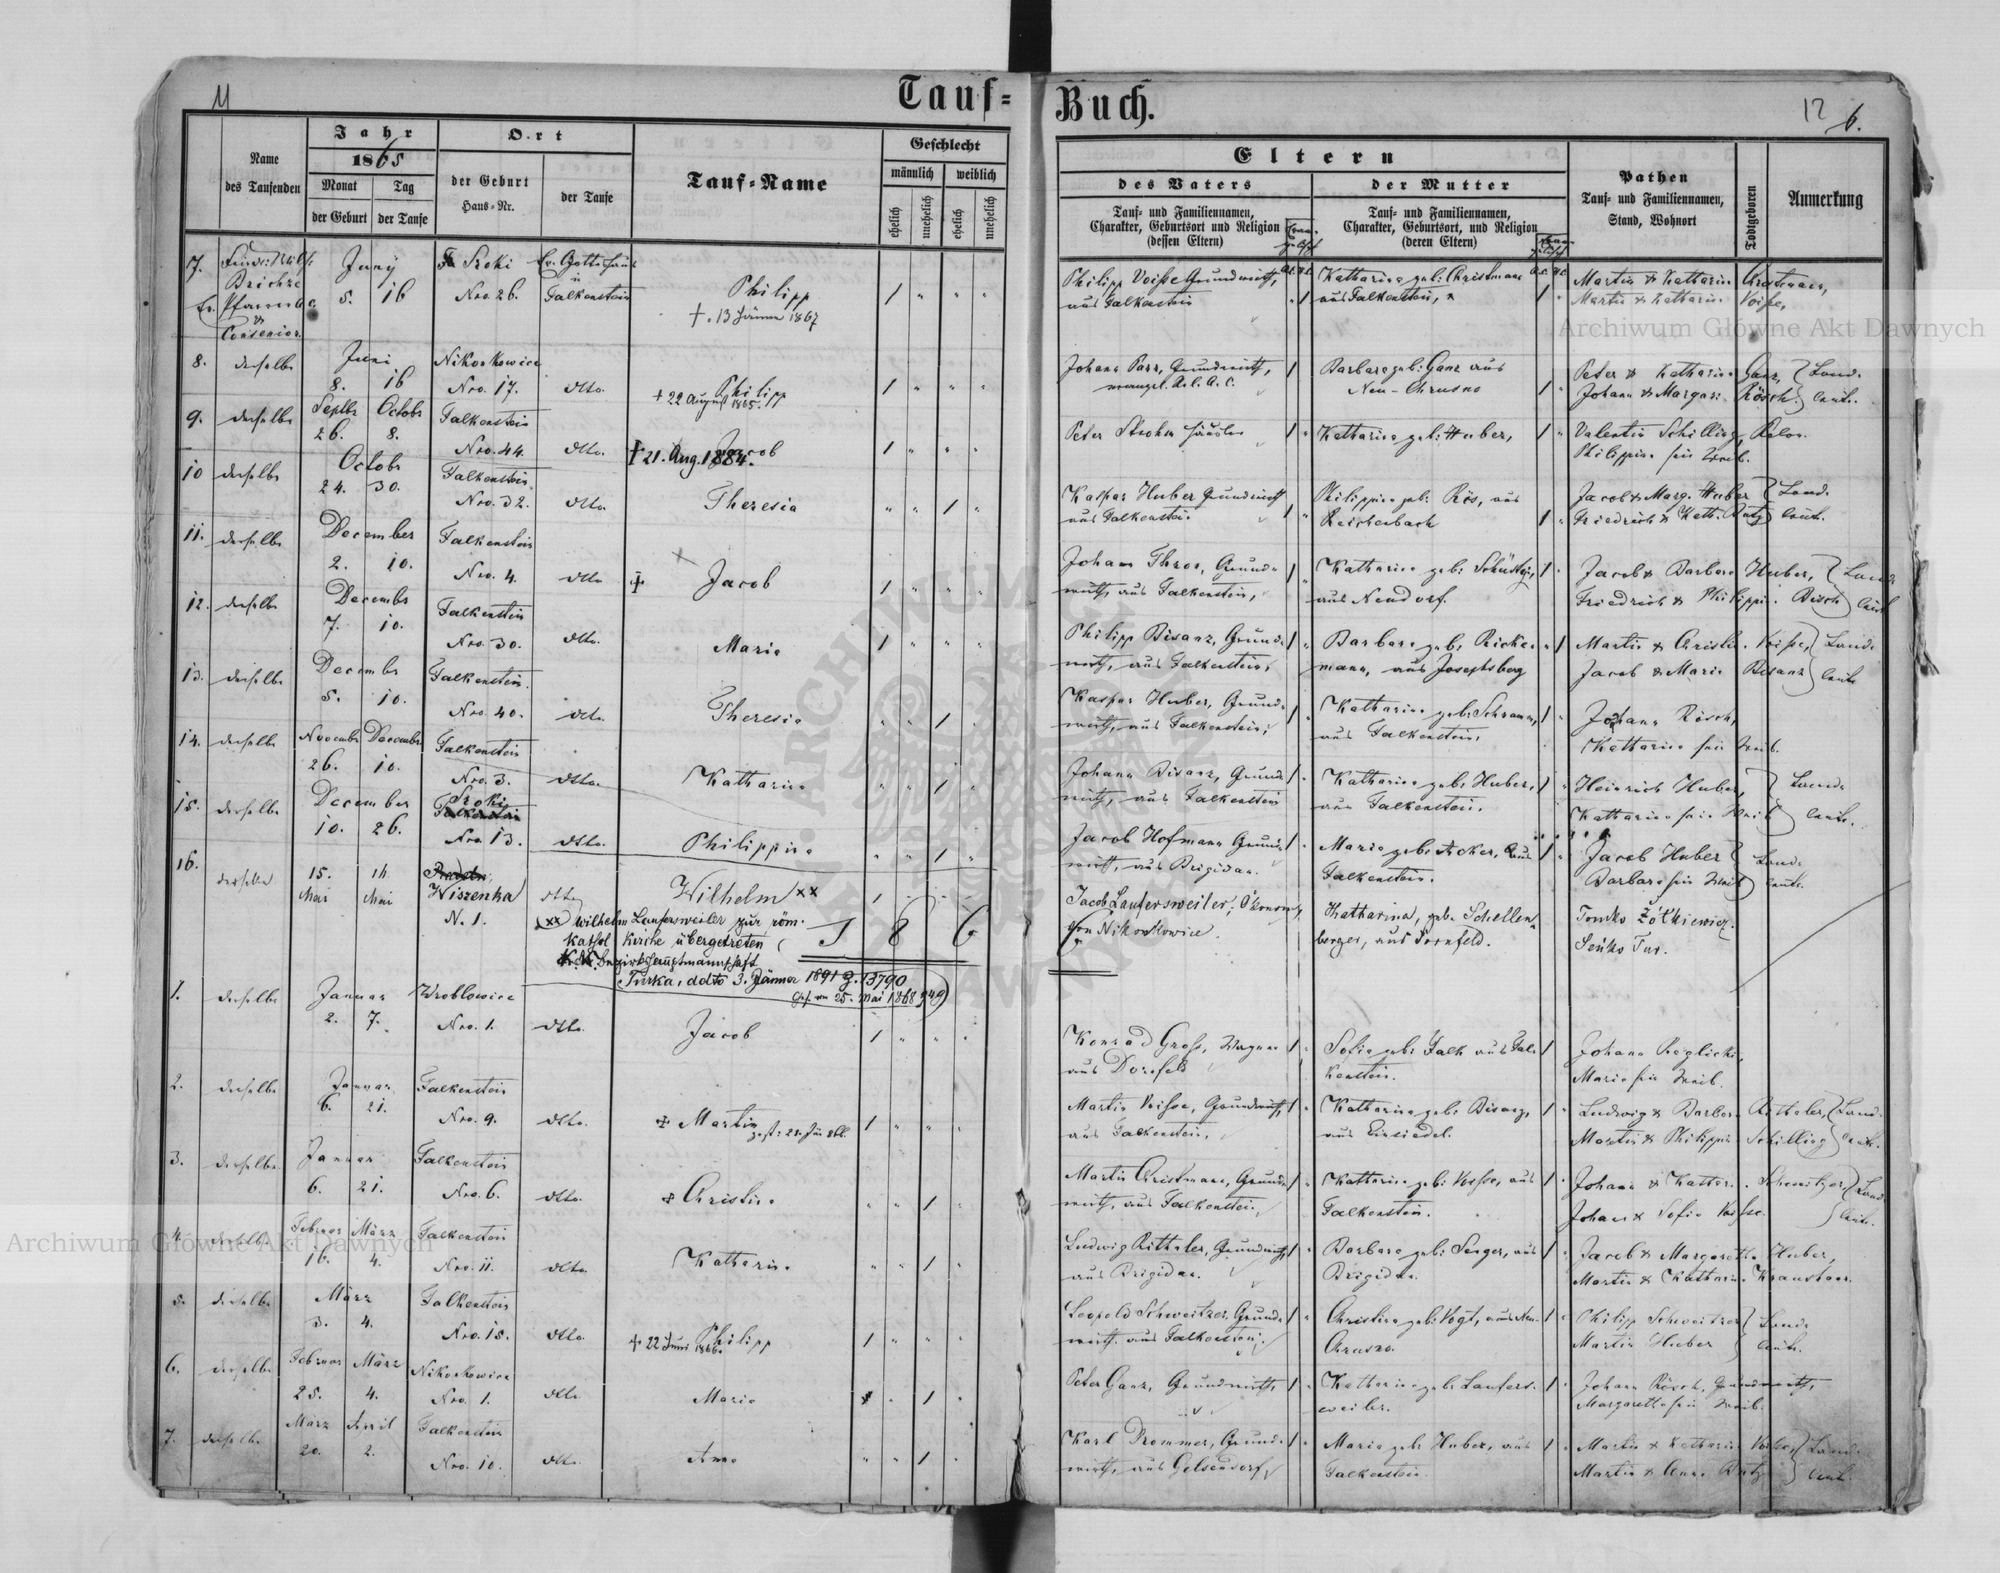 11
Tauf-Buch.
12
6.
Name
des Taufenden
Jahr
1865
Monat
der Geburt
Tag
der Taufe
Ort
der Geburt
Haus-Nr.
der Taufe
Tauf-Name
Geschlecht
männlich
weiblich
ehelich
unehelich
ehelich
unehelich
Eltern
des Vaters
Tauf- und Familiennamen,
Charakter, Geburtsort und Religion
(dessen Eltern)
der Mutter
Tauf- und Familiennamen,
Charakter, Geburtsort, und Religion
(deren Eltern)
Pathen
Tauf- und Familiennamen,
Stand, Wohnort
Todtgeboren
Anmerkung
7.
Juny
5. 16
Szoki
Nro. 26.
Falkenstein
Philipp
+. 13 Jänner 1867
Philipp Voiße Grundwirth,
aus Falkenstein
Katharina geb: Christmann
aus Falkenstein,
Martin & Katharin Christmann,
Martin & Katharin Voiße,
8. derselbe
Juni
8. 16
Nikonkowice
Nro. 17. dtto.
Philipp
+ 22 August 1865.
Johann Parr, Grundwirth,
Barbara geb: Ganz aus
Neu-Chrusno
Peter & Katharina Ganz,
Johann & Margar: Rösch. Landleute.
9. derselbe
Septbr Octobr
26. 8.
Falkenstein
Nro. 44. dtto.
Jacob
+ 21. Aug. 1884.
Peter Strohm Häusler
Katharina geb: Huber,
Valentin Schilling,
Philippine sein Weib.
10 derselbe
Octobr
24. 30.
Falkenstein.
Nro. 32. dtto
Theresia
Kaspar Huber Grundwirth
aus Falkenstein.
Philippine geb: Rös, aus
Reichenbach
Jacob & Marg. Huber
Friedrich & Kath. Butz Landleute.
11. derselbe
December
2. 10.
Falkenstein
Nro. 4. dtto
Jacob
Johann Thros, Grundwirth, aus Falkenstein,
Katharina geb:
aus Neudorf.
Jacob & Barbara Huber,
Friedrich & Philippin. Bisch Landleute
12. derselbe
Decembr
7. 10.
Falkenstein
Nro. 30. dtto.
Maria
Philipp Bisanz, Grundwirth, aus Falkenstein,
Barbara geb. Rickemann, aus Josephsberg
Martin & Christin. Voiße,
Jacob & Maria Bisanz Landleute
13. derselbe
Decembr
5. 10.
Falkenstein.
Nro. 40. dtto.
Theresia
Kaspar Huber, Grundwirth, aus Falkenstein,
Katharina geb: Schramm,
aus Falkenstein,
Johann Rösch,
Katharina sein Weib.
14. derselbe
November December
26. 10.
Falkenstein
Nro. 3. dtto.
Katharina
Johann Bisanz, Grundwirth, aus Falkenstein
Katharina geb: Huber,
aus Falkenstein.
Heinrich Huber,
Katharina sein Weib Landleute.
15. derselbe
December
10. 26.
Szoki
Falkenstein
Nro. 13. dtto.
Philippina
Jacob Hofmann Grundwirth, aus Brigidau.
Maria geb: Acker, aus
Falkenstein.
Jacob Huber
Barbara sein Weib Landleute.
16. derselbe
15. 16.
Mai Mai
Wiszenka
N. 1.
dtto
Wilhelm xx
(xx Wilhelm Laufersweiler zur röm.
kathol Kirche übergetreten
K.K. Bezirkshauptmannschaft
Turka, ddto 3. Jänner 1891 Z. 13790
Ges. vom 25. Mai 1868 § 49)
Jacob Laufersweiler, Oekonom,
von Nikonkowice.
Katharina, geb. Schellenberger, aus Dornfeld.
Tomko Żółkiewicz.
Seńko Tur.
1 8 6 6
1. derselbe
Januar
2. 7.
Wroblowice
Nro. 1. dtto.
Jacob
Konrad Groß, Wagner
aus Dornfeld
Sofia geb: Falk aus Falkenstein.
Johann
Maria sein Weib.
2. derselbe
Januar
6. 21.
Falkenstein
Nro. 9. dtto.
Martin
Martin Voiße, Grundwirth,
aus Falkenstein,
Katharina geb: Bisanz,
aus Einsiedel.
Ludwig & Barbara Rithaler,
Martin & Philippin Schilling Landleute.
3. derselbe
Januar
6. 21.
Falkenstein
Nro. 6. dtto.
Christina
Martin Christmann, Grundwirth, aus Falkenstein,
Katharina geb: Voiße, aus
Falkenstein.
Johann & Katharin. Schweitzer,
Johann & Sofia Voiße. Landleute.
4. derselbe
Februar März
16. 4.
Falkenstein
Nro. 11. dtto.
Katharina
Ludwig Rithaler, Grundwirth,
aus Brigidau.
Barbara geb: Senger, aus
Brigidau.
Jacob & Margaretha Huber,
Martin & Katharin.
5. derselbe
März
3. 4.
Falkenstein
Nro. 15. dtto.
Philipp
+ 22 Juni 1866.
Leopold Schweitzer, Grundwirth. aus Falkenstein.
Christina geb: Vogt, aus Neu-Chrusno.
Philipp Schweitzer
Martin Huber Landleute.
6. derselbe
Februar März
25. 4.
Nikonkowice
Nro. 1. dtto
Maria
Peter Ganz, Grundwirth,
Katharina geb: Laufersweiler.
Johann Rösch, Grundwirth,
Margaretha sein Weib.
7. derselbe
März April
20. 2.
Falkenstein
Nro. 10. dtto.
Anna
Karl Drommer, Grundwirth, aus Gelsendorf,
Maria geb: Huber, aus
Falkenstein.
Martin & Katharin Voiße,
Martin & Anna Butz Landleute.
Archiwum Główne Akt Dawnych
Archiwum Główne Akt Dawnych